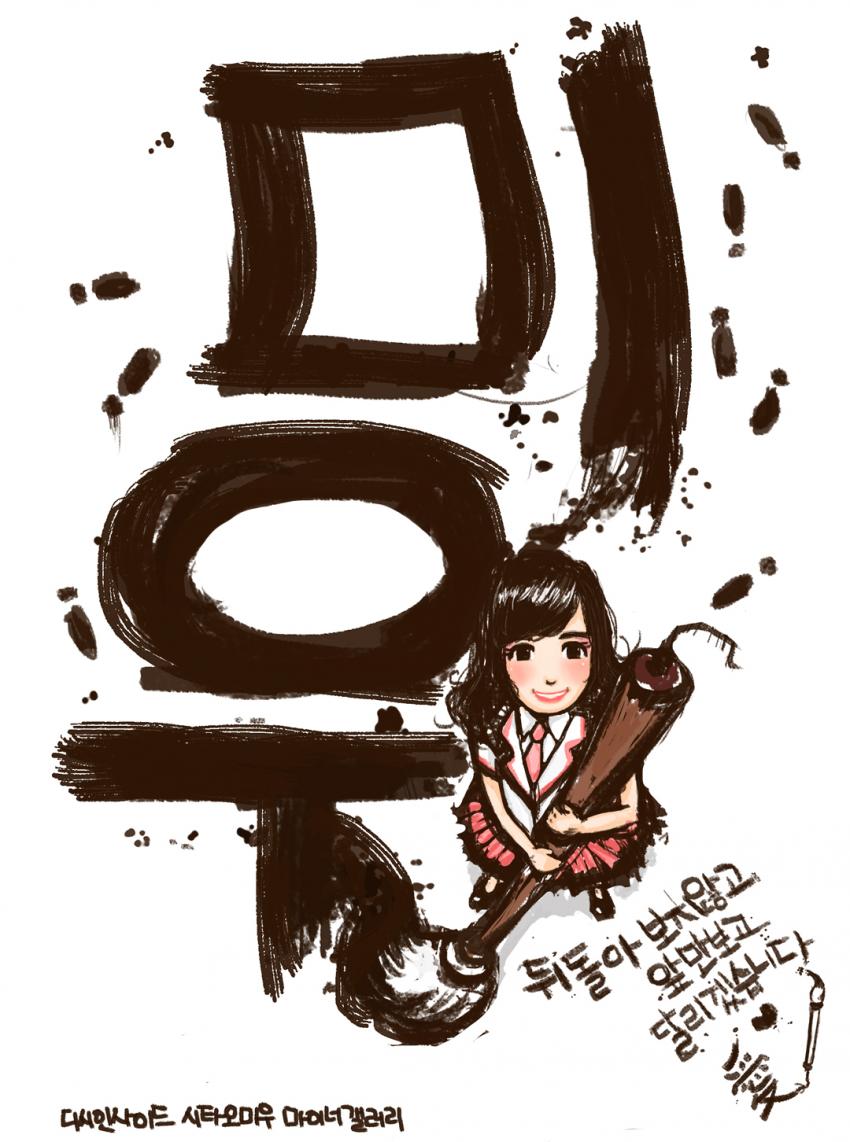 미
우
뒤돌아 보지않고
앞만보고
달리겠습니다
디시인사이드 시타오미우 마이너갤러리